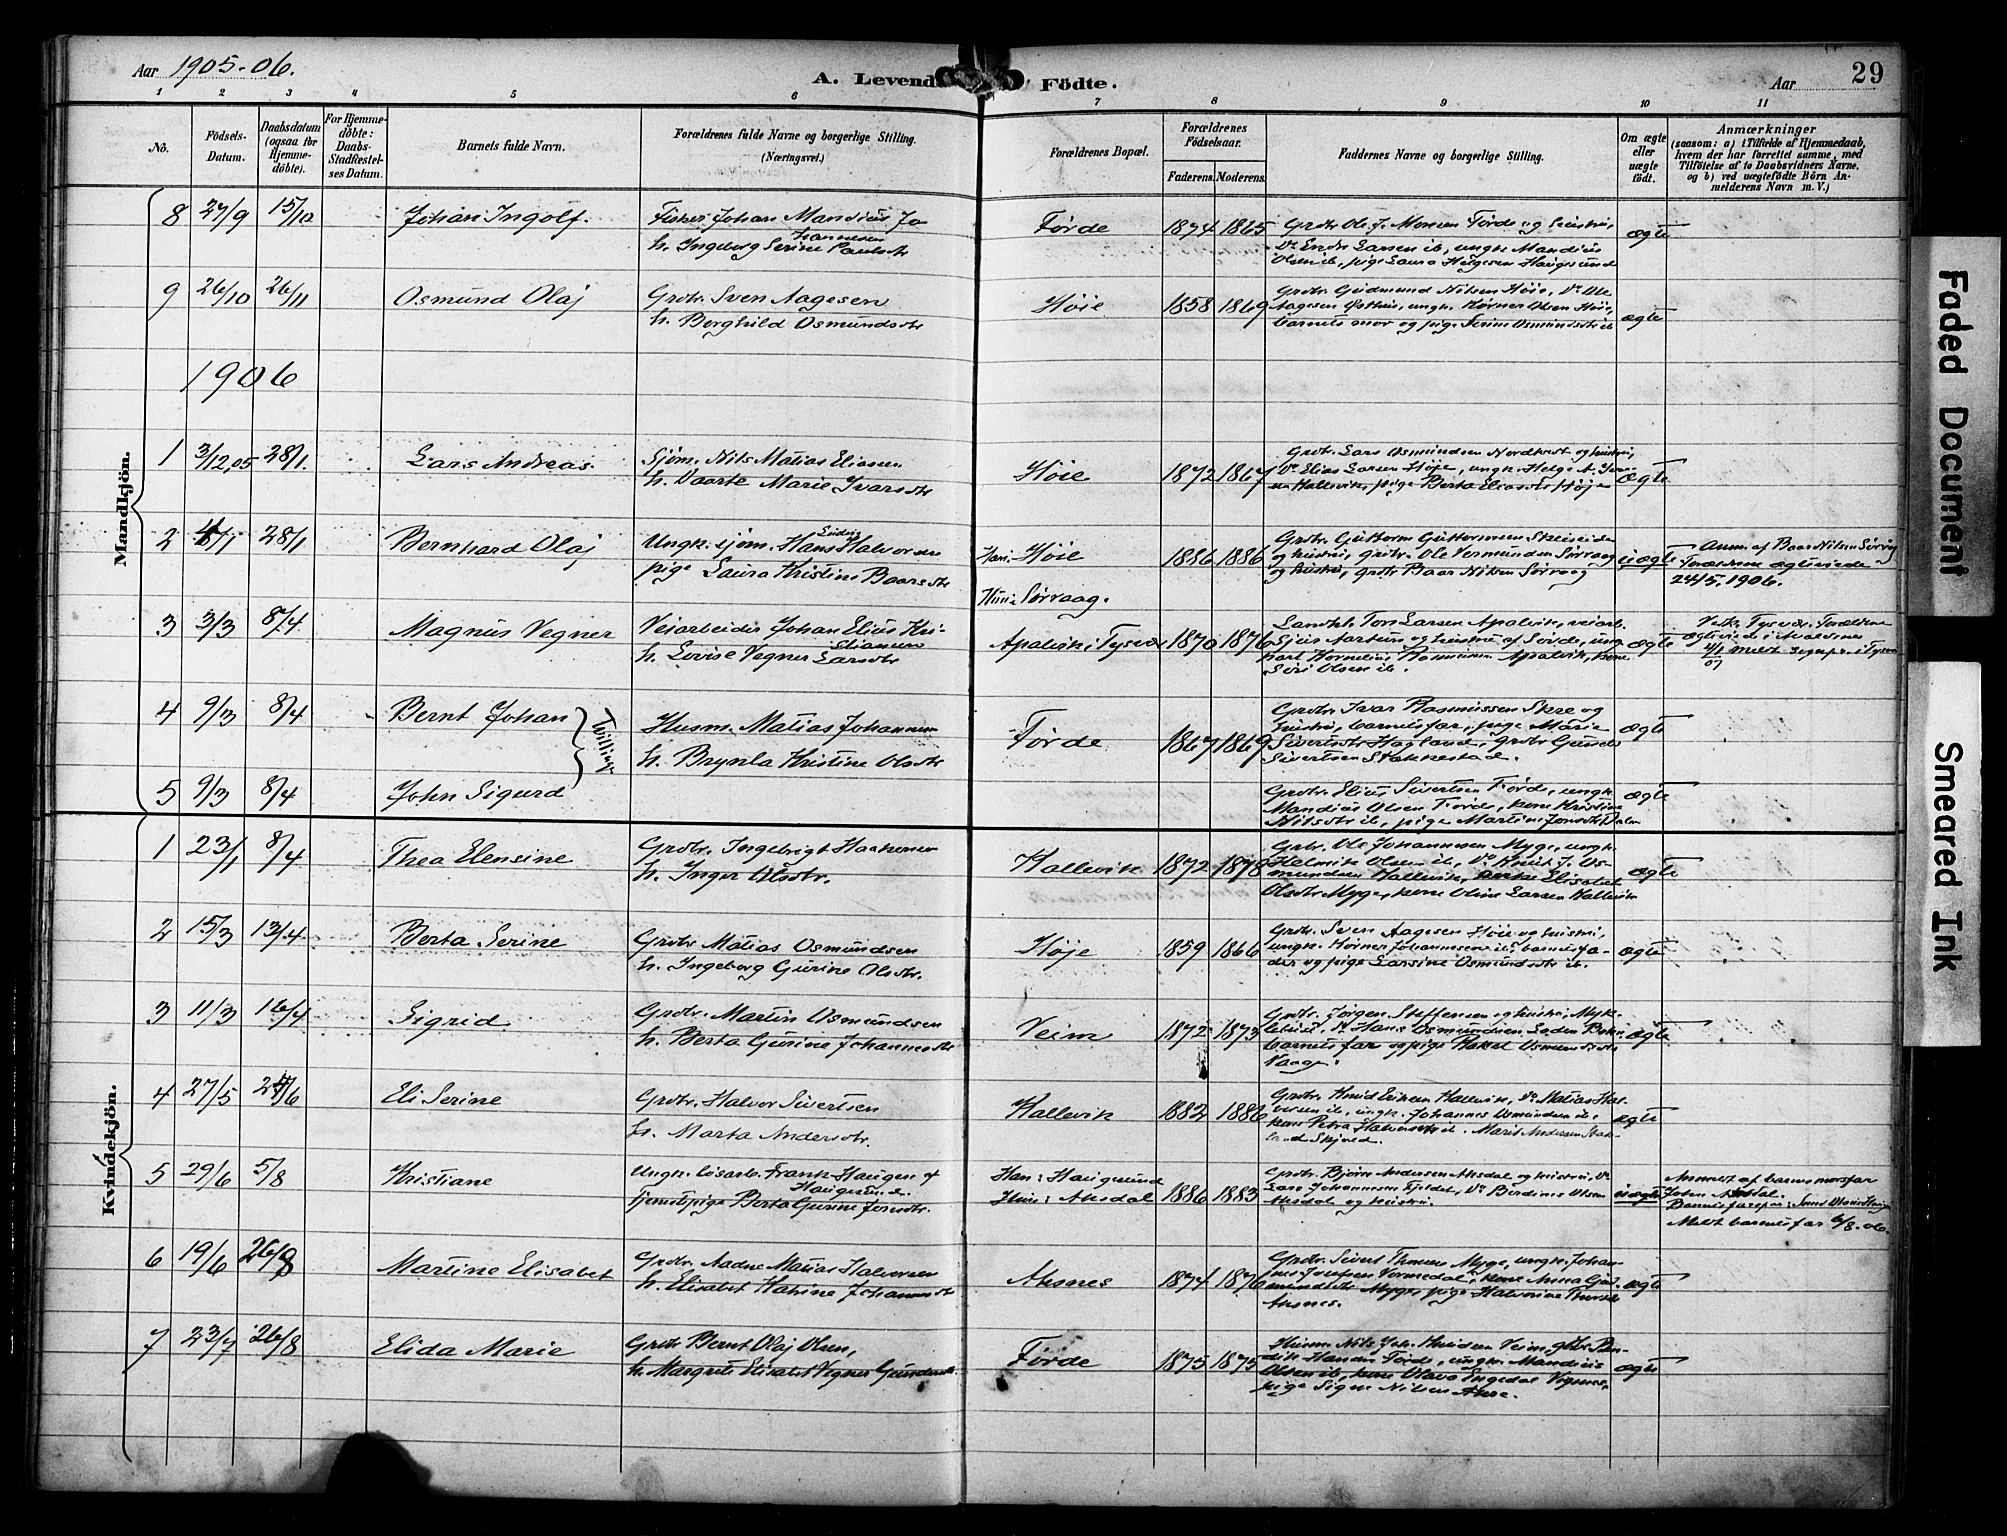 Aar 1905-06.
A. Levende Födte.
Aar
29
1 2 3 4 5 6 7 8 9 10 11
No.
Födsels-Datum.
Daabsdatum (ogsaa for Hjemmedöbte).
For Hjemmedöbte: Daabs-Stadfæstelses Datum.
Barnets fulde Navn.
Forældrenes fulde Navne og borgerlige Stilling.
(Næringsvei.)
Forældrenes Bopæl.
Forældrenes Födselsaar.
Faderens. Moderens.
Faddernes Navne og borgerlige Stilling.
Om ægte eller uægte födt.
Anmærkninger
(saasom: a) i Tilfælde af Hjemmedaab,
hvem der har forrettet samme, med
Tilföielse af to Daabsvidners Navne,
og b) ved uægtefödte Börn Anmelderens Navn m. V.)
Mandkjön.
8 27/9 15/10 Johan Ingolf. Fisker Johan Mandius Johannesen
h. Ingeborg Serine Paulsdtr
Førde 1874 1865 Grdbr. Ole J. Monsen Førde og hustru,
Do Endre Larsen ib, ungk. Mandius
Olsen ib, pige Laura Helgesen Haugesund
ægte
9 26/10 26/11 Osmund Olaj Grdbr. Sven Aagesen
h. Borghild Osmundsdtr
Høie 1858 1869 Grdbr. Gudmund Nilsen Høie, Do Ole
Aagesen Østhus, ungk. Olsen Høie,
barnets mor og pige Serine Osmundsdtr ib
ægte
1906
1 3/12.05 28/1. Lars Andreas. Sjøm. Nils Matias Eliasen
h. Vaarte Marie Ivarsdtr
Høie 1872 1867 Grdbr. Lars Osmundsen og hustru,
Do Elias Larsen Høje, ungk. Helge A.
Hallevik, pige Berta Eliasdtr Høje
ægte
2 4/1 28/1 Bernhard Olaj Ungk. sjøm. Hans Ludvig Halvorsen
pige Laura Kristine Baarsdtr
Han: Høie
Hun: Sørvaag.
1886 1886 Grdbr. Guttorm Guttormsen
og hustru, grdbr. Ole Vermundsen Sørvaag
og hustru, grdbr Baar Nilsen Sørvaag
uægte
Anm. af Baar Nilsen Sørvaag
Forældrene ægteviede
24/5. 1906.
3 3/3 8/4 Magnus Vegner Veiarbeider Johan Elius Kristiansen
h. Lovise Vegner Larsdtr
Apalvik i Tysvær 1870 1876 Tors Larsen Apalvik, veiarb.
og hustru af Sovde, ungkarl
Kornelius Rasmussen Apalvik, kone
Siri Olsen ib.
ægte
Tysvær. Forældrene
ægteviede i
4/1 07 meldt sogнepr. i Tysvær
4 9/3 8/4 Bernt Johan
Tvillinger
Husm. Matias Johannesen
h. Brynla Kristine Olsdtr
Førde 1867 1869 Grdbr Ivar Rasmussen Skre og
hustru, barnets far, pige Marie
Sivertsdtr Hagland, grdbr Gunder
Sivertsen Stakkestad.
ægte
5 9/3 8/4 John Sigurd
Grdbr. Elius Sivertsen Førde, ungk.
Mandius Olsen Førde, kone Kristine
Nilsdtr ib, pige Martine Jonsdtr Dalen
ægte
Kvindekjön.
1 23/1 8/4 Thea Elensine Grdbr. Ingebrigt Haakonsen
h. Inger Olsdtr.
Hallevik 1872 1878 Grdbr. Ole Johannessen Myge, ungk.
Helmik Olsen ib, Do Knut J. Osmundsen
Hallevik, enke Elisabet
Olsdtr Myge, kone Oline Larsen Hallevik
ægte
2 15/3 13/4. Berta Serine Grdbr Matias Osmundsen
h. Ingeborg Gurine Olsdtr.
Høje 1859 1866 Grdbr. Sven Aagesen Høie og hustru,
ungk. Johannesen ib, barnets fader
og pige Larsine Osmundsdtr ib.
ægte
3 11/3 16/4 Sigrid Grdbr. Martin Osmundsen
h. Berta Gurine Johannesdtr
Veim 1872 1873 Grdbr. Jørgen Steffensen og hustru, Myklebust,
Do Hans Osmundsen Loden Bokn
barnets far og pige Rakel Osmundsdtr
Vaage.
ægte
4 27/5 24/6 Eli Serine Grdbr. Halvor Sivertsen
h. Marta Andersdtr.
Hallevik 1882 1886 Grdbr. Knud Eriksen Hallevik, Do Matias Halvorsen
ib, ungk. Johannes Osmundsen ib,
kone Petra Halvorsdtr ib. Marit Andersen
Skjold.
ægte
5 29/6 5/8 Kristiane Ungk. løsarb. Frank Haugen af
Haugesund
tjenestpige Berta Gurine Jonsdtr.
Han: Haugesund
Hun: Aksdal
1886 1883 Grdbr. Bjørn Andersen Aksdal og hustru, Do
Lars Johannesen Fjeldet, Do Berdines Olsen
Aksdal og hustru.
uægte
Anmeldt af barnets morsfar
John Aksdal.
Meldt barnets far 6/8.06.
6 19/6 26/8 Martine Elisabet Grdbr. Aadne Matias Halvorsen
h. Elisabet Katrine Johannesdtr
Aksnes 1874 1876 Grdbr. Sivert Thomsen Myge, ungk. Johannes
Josefsen Vormedal, kone Anna
Myge, pige Halvorine
Aksnes.
ægte
7 23/7 26/8 Elida Marie Grdbr Bernt Olaj Olsen,
h. Margrete Elisabet Vegner Gundersdtr.
Førde 1875 1875 Husm. Nils Joh. Knudsen Veim, grdbr Bendik
Hansen Førde, ungk. Mandius
Olsen ib, kone Olava Engedal Vignes,
pige Signe Nilsen
ægte
Faded Document
Smeared Ink